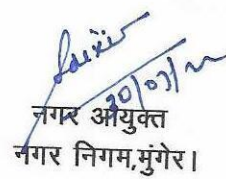 20/07/22
नगर आयुक्त
नगर निगम,मुंगेर।